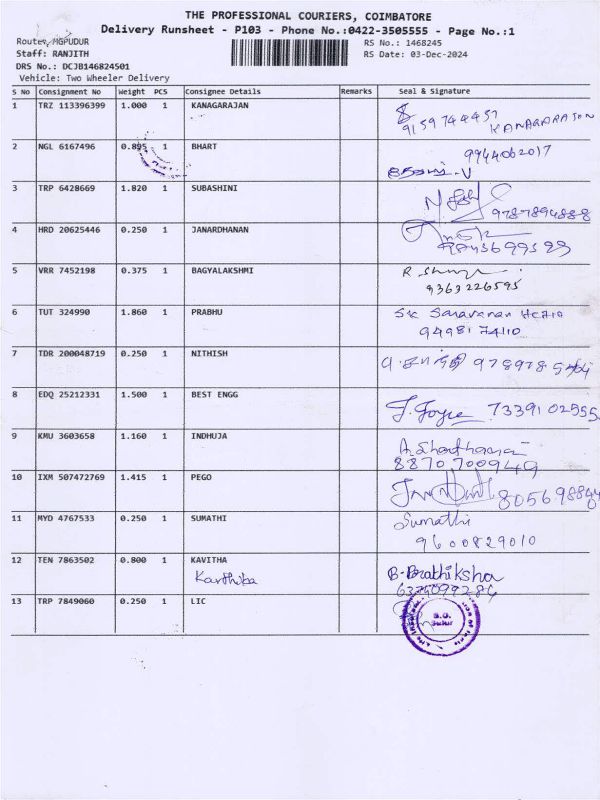 THE PROFESSIONAL COURIERS, COIMBATORE
Delivery Runsheet - P103 - Phone No.:0422-3505555 - Page No.:1
Route: MGPUDUR RS No.: 1468245
Staff: RANJITH RS Date: 03-Dec-2024
DRS No.: DCJB146824501
Vehicle: Two Wheeler Delivery
S No Consignment No Weight PCS Consignee Details Remarks Seal & Signature
1 TRZ 113396399 1.000 1 KANAGARAJAN
9159744457 KANAGARASON
2 NGL 6167496 0.895 1 BHART 9944062017
3 TRP 6428669 1.820 1 SUBASHINI
9787894888
4 HRD 20625446 0.250 1 JANARDHANAN
5 VRR 7452198 0.375 1 BAGYALAKSHMI
9363226595
6 TUT 324990 1.860 1 PRABHU Saravanan
9498174110
7 TDR 200048719 0.250 1 NITHISH
8 EDQ 25212331 1.500 1 BEST ENGG J. Joyce 7339102555
9 KMU 3603658 1.160 1 INDHUJA
8870700949
10 IXM 507472769 1.415 1 PEGO
11 MYD 4767533 0.250 1 SUMATHI Sumathi
9600829010
12 TEN 7863502 0.800 1 KAVITHA B. Brathiksha
Karthika
13 TRP 7849060 0.250 1 LIC
S.O.
Sulur